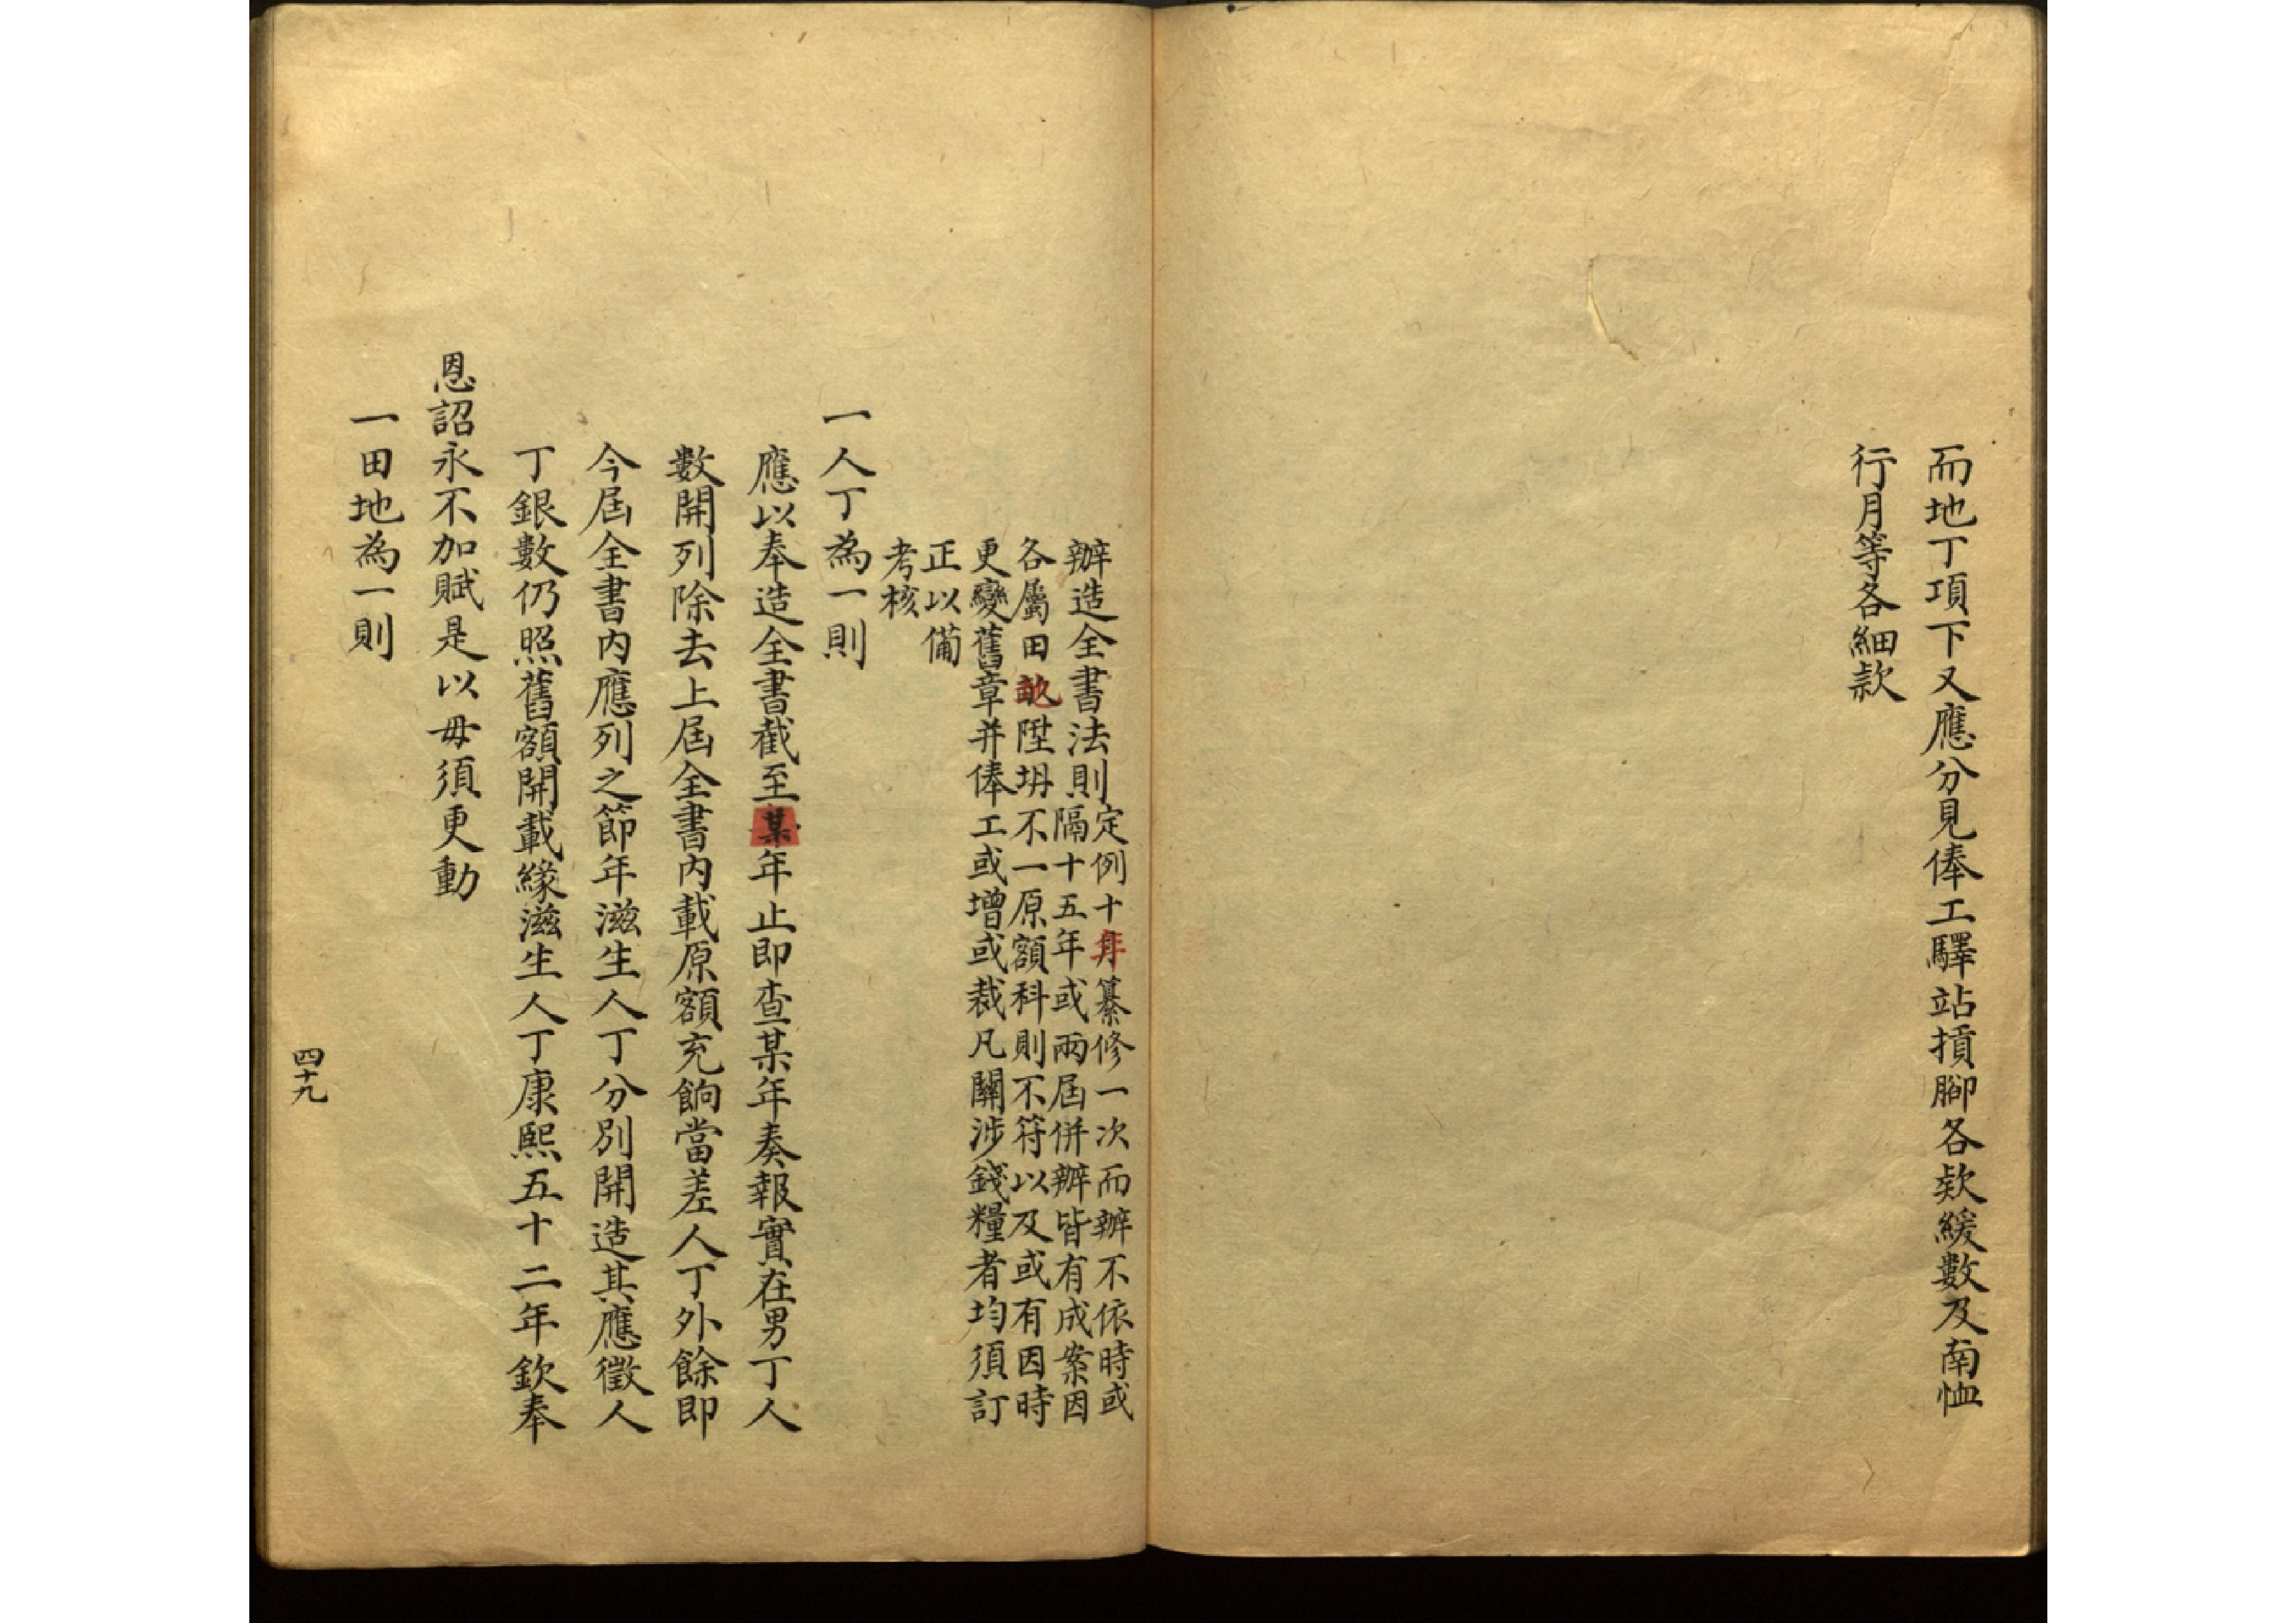 而地丁項下又應分見俸工驛站摃腳各欵緩數及南恤
行月等各細款
辦造全書法則定例十年纂修一次而辦不依時或
隔十五年或兩屆併辦皆有成案因
各屬田畝陞坍不一原額科則不符以及或有因時
更變舊章并俸工或增或裁凡關涉錢糧者均須訂
正以備
考核
一人丁為一則
應以奉造全書截至某年止即查某年奏報實在男丁人
數開列除去上屆全書內載原額充餉當差人丁外餘即
今屆全書內應列之節年滋生人丁分別開造其應徵人
丁銀數仍照舊額開載緣滋生人丁康熙五十二年欽奉
恩詔永不加賦是以毋須更動
一田地為一則
四十九